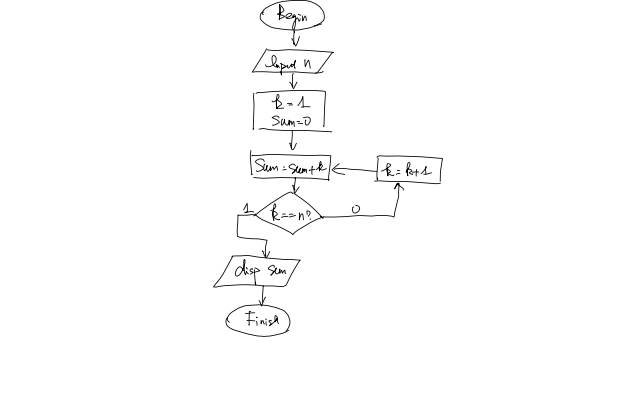 Begin
Input n
k = 1
Sum=0
Sum=sum+k
k = k+1
k==n?
1
0
disp sum
Finish